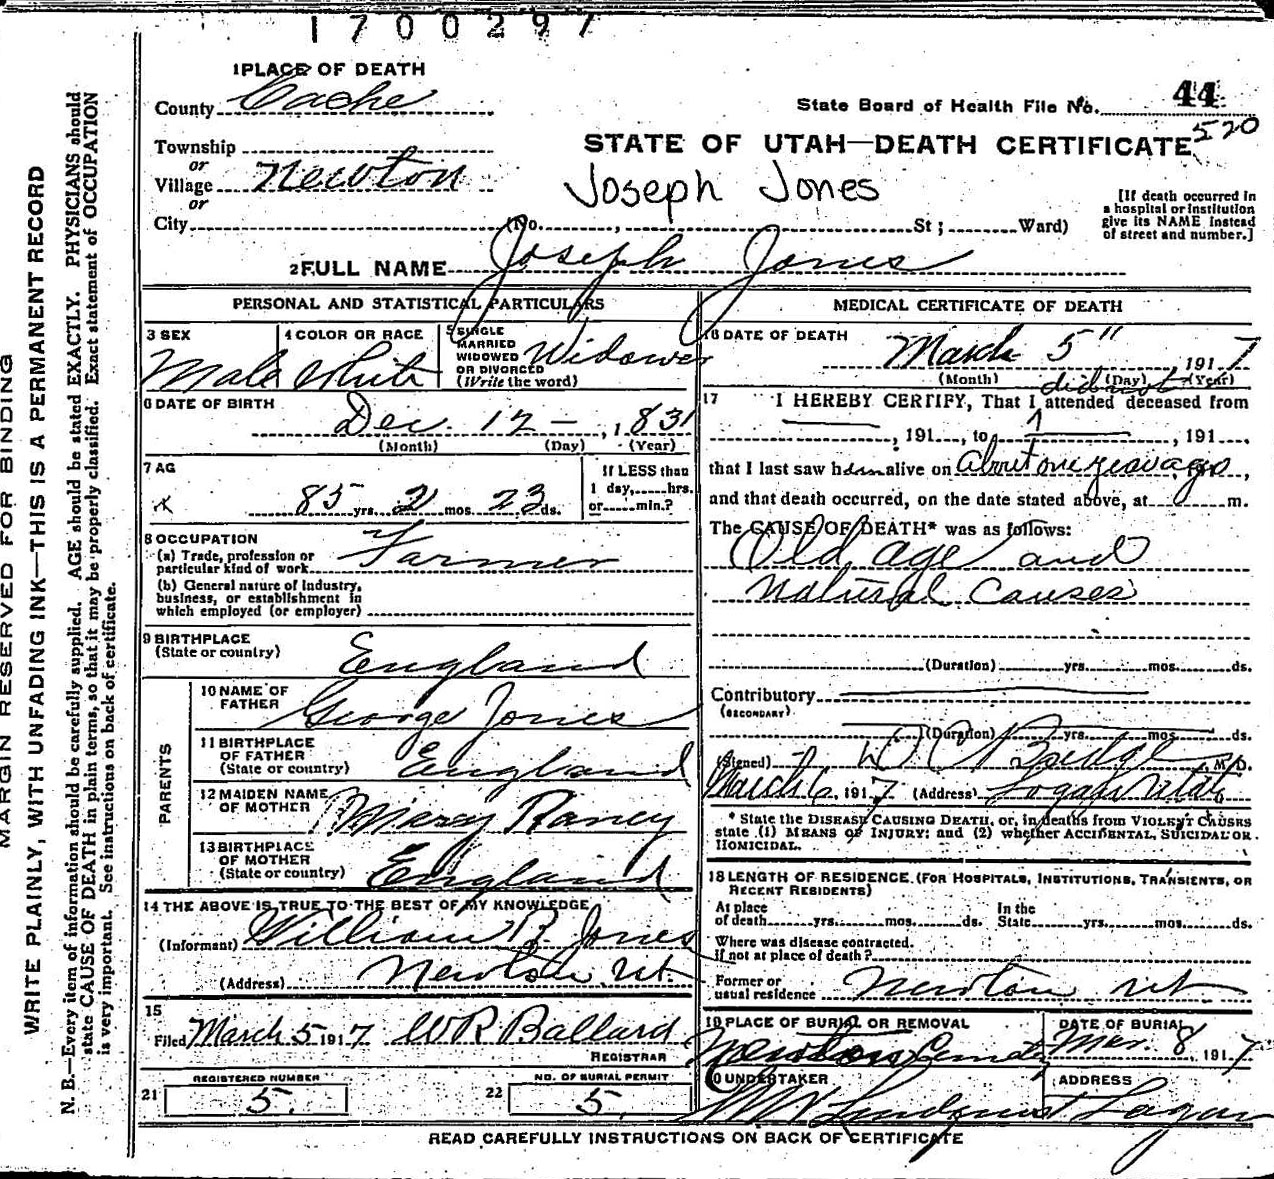 1700297
1 PLACE OF DEATH
County Cache
State Board of Health File No. 44
520
Township
STATE OF UTAH—DEATH CERTIFICATE
or
Village Newton
Joseph Jones
or
City (No. , St; Ward)
[If death occurred in
a hospital or institution
give its NAME instead
of street and number.]
2 FULL NAME Joseph Jones
PERSONAL AND STATISTICAL PARTICULARS
3 SEX
Male
4 COLOR OR RACE
White
5 SINGLE
MARRIED
WIDOWED
OR DIVORCED
(Write the word)
Widower
6 DATE OF BIRTH
Dec. 12 — , 1831
(Month) (Day) (Year)
7 AG
85 yrs. 2 mos. 23 ds.
If LESS than
1 day, hrs.
or min.?
8 OCCUPATION
(a) Trade, profession or
particular kind of work Farmer
(b) General nature of Industry,
business, or establishment in
which employed (or employer)
9 BIRTHPLACE
(State or country) England
PARENTS
10 NAME OF
FATHER George Jones
11 BIRTHPLACE
OF FATHER
(State or country) England
12 MAIDEN NAME
OF MOTHER
13 BIRTHPLACE
OF MOTHER
(State or country) England
14 THE ABOVE IS TRUE TO THE BEST OF MY KNOWLEDGE
(Informant) William B. Jones
(Address) Newton Ut.
15
Filed March 5 1917 W R Ballard
REGISTRAR
REGISTERED NUMBER
21 5.
NO. OF BURIAL PERMIT
22 5.
MEDICAL CERTIFICATE OF DEATH
16 DATE OF DEATH
March 5" 1917
(Month) (Day) (Year)
did not
17 I HEREBY CERTIFY, That I attended deceased from
, 191 , to , 191 ,
that I last saw him alive on about one year ago ,
and that death occurred, on the date stated above, at m.
The CAUSE OF DEATH* was as follows:
Old age and
natural causes
(Duration) yrs. mos. ds.
Contributory
(SECONDARY)
(Duration) yrs. mos. ds.
(Signed) D C Budge M.D.
March 6, 1917 (Address) Logan Utah
* State the DISEASE CAUSING DEATH, or, in deaths from VIOLENT CAUSES
state (1) MEANS OF INJURY; and (2) whether ACCIDENTAL, SUICIDAL OR
HOMICIDAL.
18 LENGTH OF RESIDENCE (FOR HOSPITALS, INSTITUTIONS, TRANSIENTS, OR
RECENT RESIDENTS)
At place
of death yrs. mos. ds.
In the
State yrs. mos. ds.
Where was disease contracted.
If not at place of death?
Former or
usual residence Newton Ut
19 PLACE OF BURIAL OR REMOVAL
Newton
DATE OF BURIAL
Mar. 8, 1917
20 UNDERTAKER
Lundquist
ADDRESS
Logan
READ CAREFULLY INSTRUCTIONS ON BACK OF CERTIFICATE
MARGIN RESERVED FOR BINDING
WRITE PLAINLY, WITH UNFADING INK—THIS IS A PERMANENT RECORD
N. B.—Every item of information should be carefully supplied. AGE should be stated EXACTLY. PHYSICIANS should
state CAUSE OF DEATH in plain terms, so that it may be properly classified. Exact statement of OCCUPATION
is very important. See instructions on back of certificate.